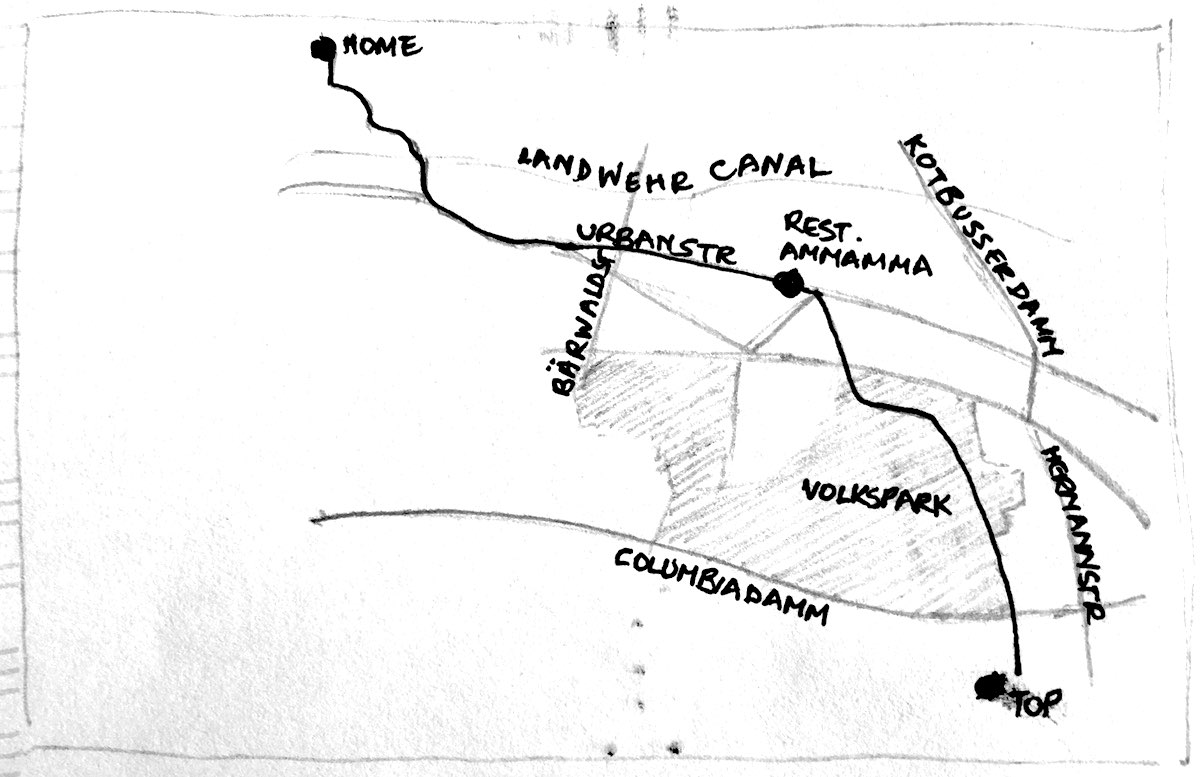 HOME
LANDWEHR CANAL
KOTBUSSERDAMM
URBANSTR
REST.
AMMAMMA
BÄRWALDST
VOLKSPARK
HERMANNSTR
COLUMBIADAMM
TOP